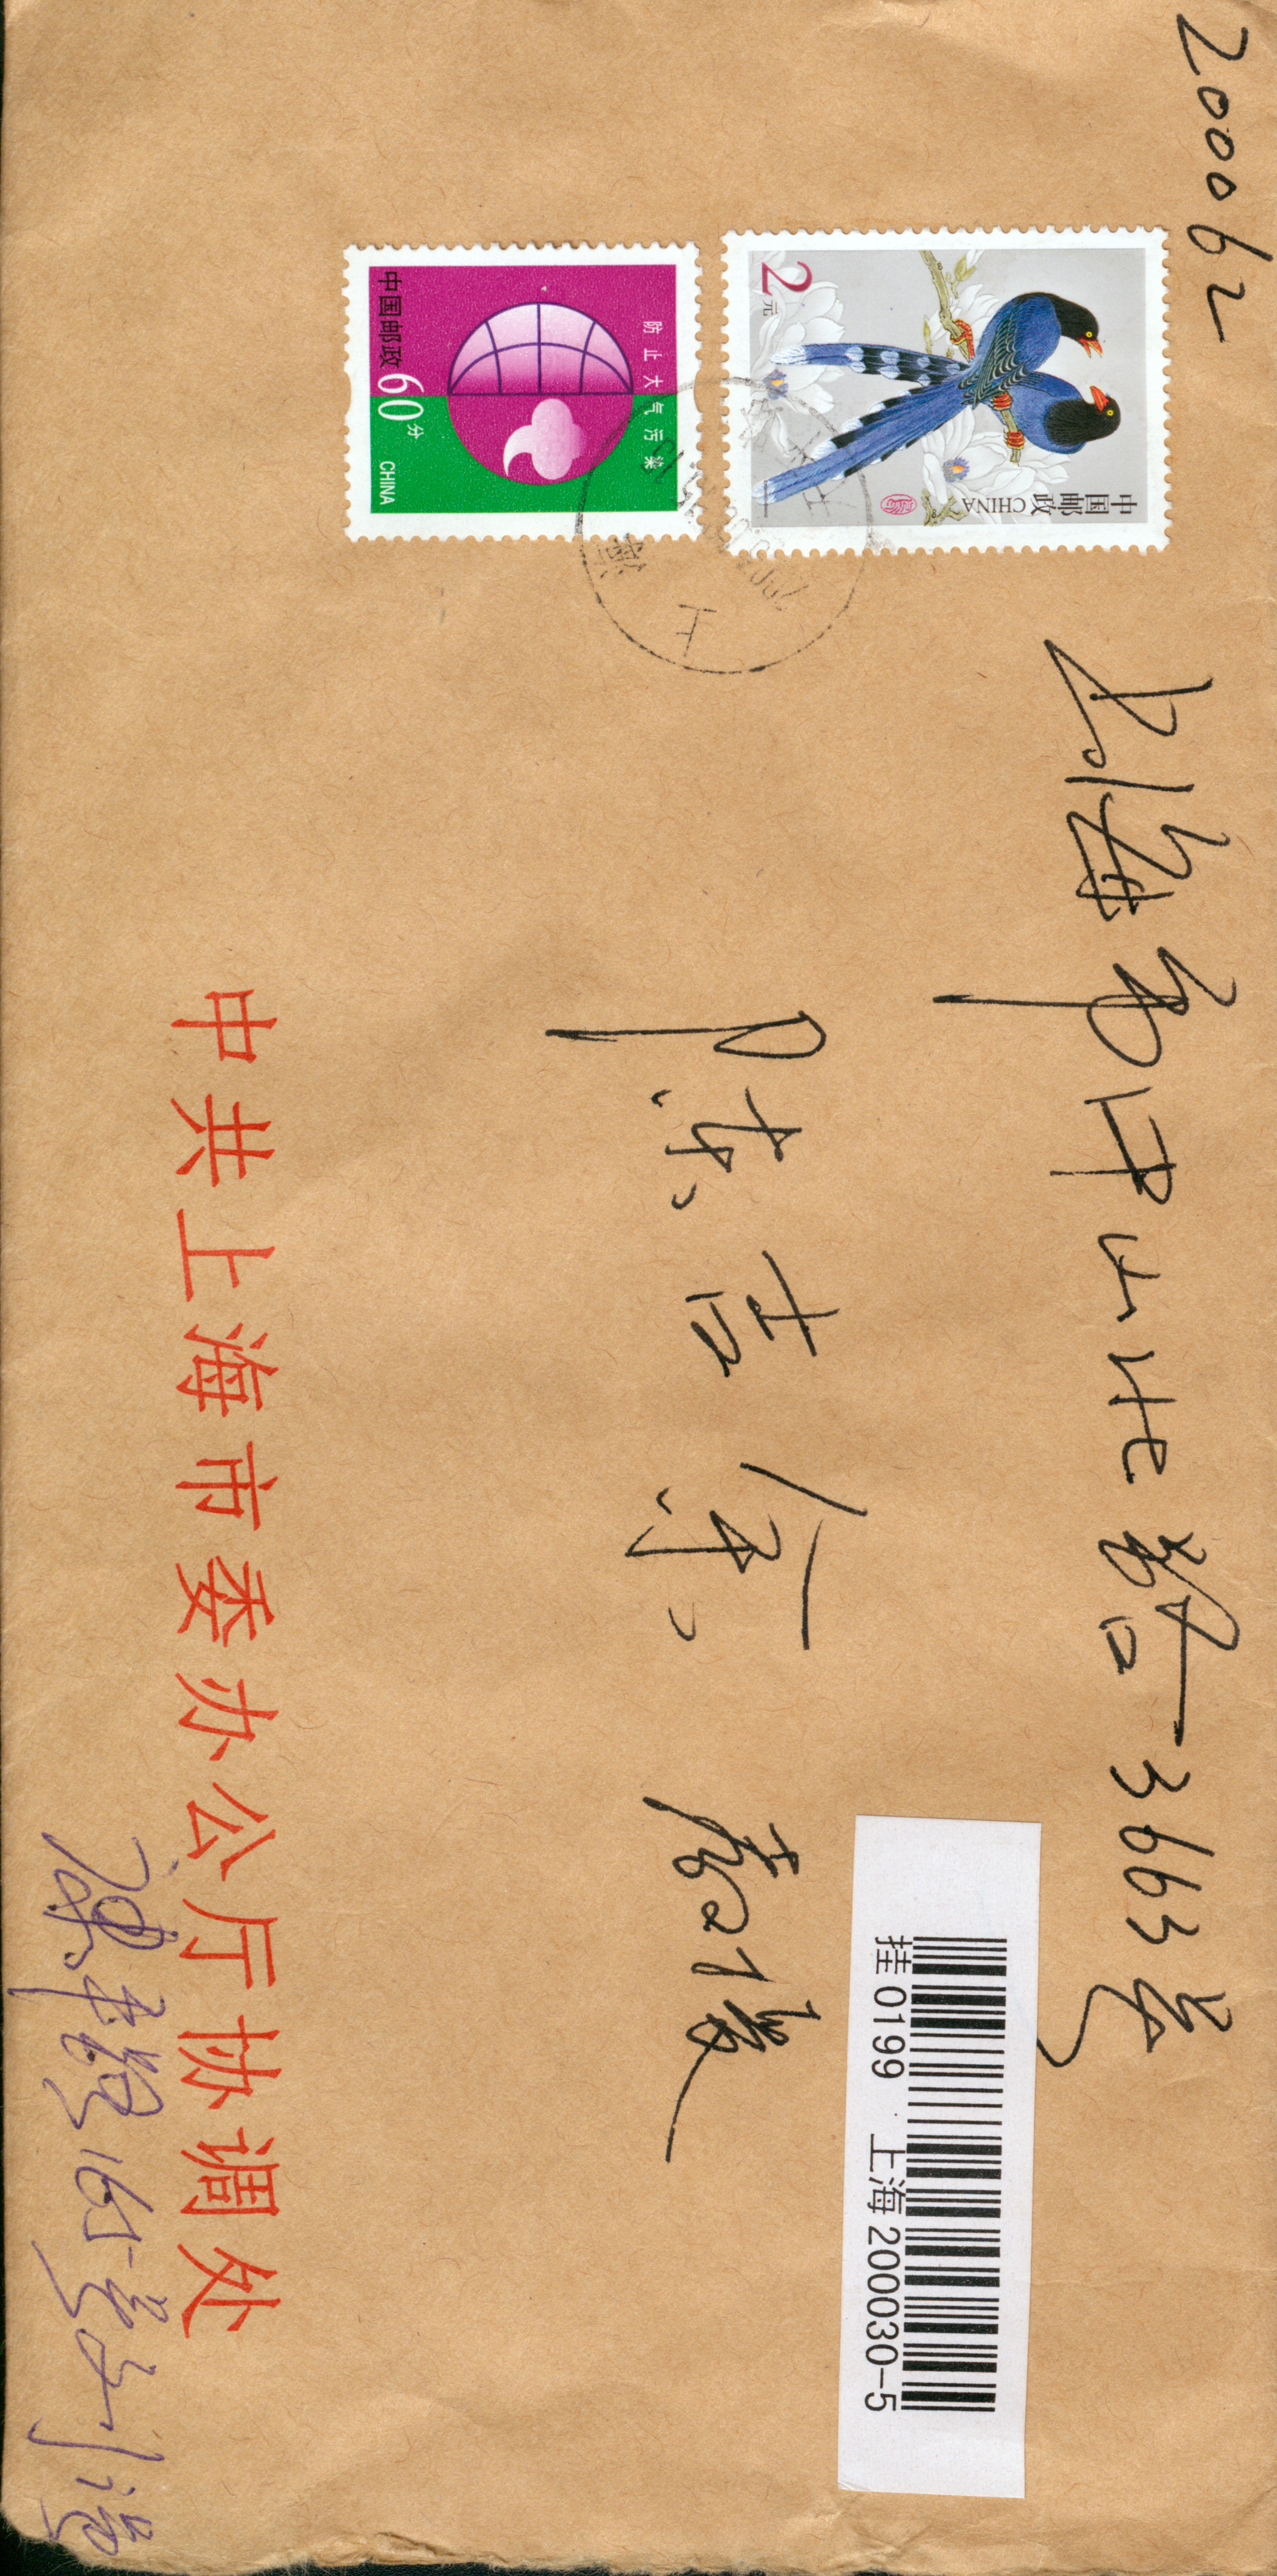 200062
2元
中国邮政CHINA
防止大气污染
中国邮政 60分 CHINA
上海
上海市中山北路3663号
陈吉余 教授
挂 0199 上海 200030-5
中共上海市委办公厅协调处
165号